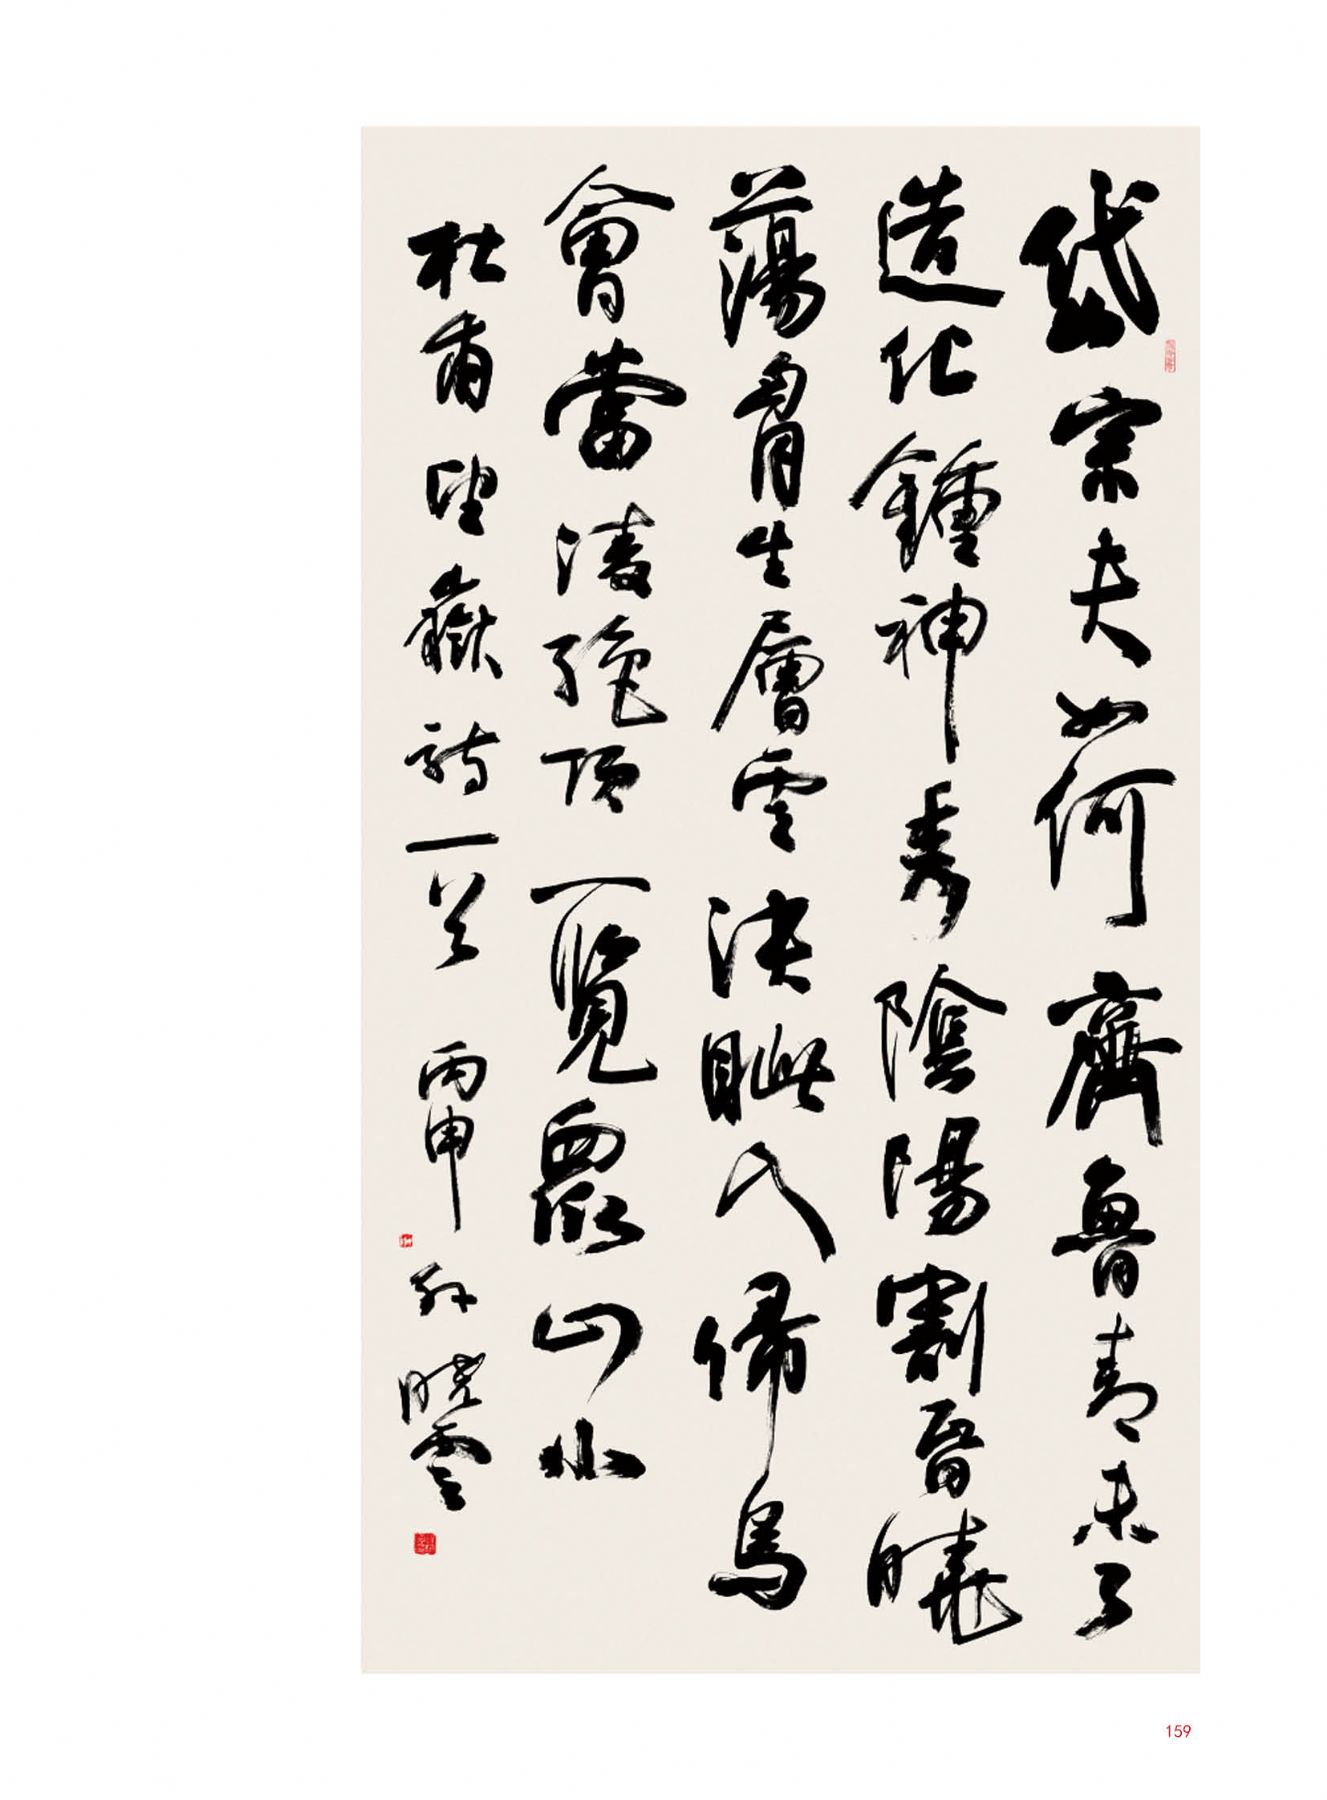 岱宗夫如何齊魯青未了
造化鍾神秀陰陽割昏曉
蕩胷生層雲決眦入歸鳥
會當凌絕頂一覽衆山小
杜甫望嶽詩一首 丙申 孫曉雲
159